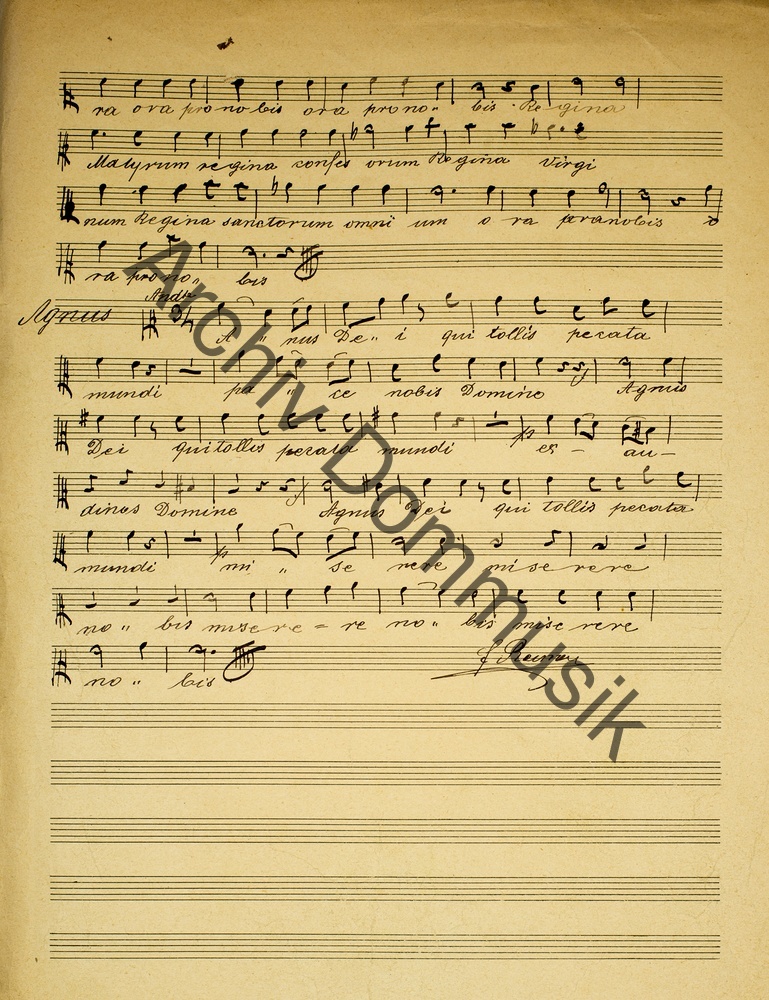 ra ora pro nobis ora prono" bis Regina
Matyrum regina confes orum Regina Virgi
num Regina sanctorum omni um o ra pranobis o
ra prono" bis
And.te
Agnus A " nus De" i qui tollis pecata
mundi pa " ce nobis Domine Agnus
Dei quitollis pecata mundi p es - au -
dinos Domine Agnus Dei qui tollis pecata
mundi p mi " se rere mi se rere
no" bis misere = re no" bis mise rere
no " bis
Archiv Dommusik